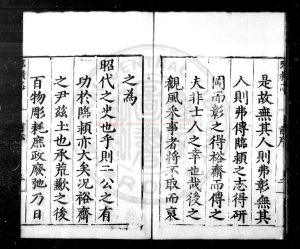 是故無其人則弗彰無其
人則弗傳臨穎之志得研
岡而彰之得裕齋而傳之
夫非士人之幸也哉後之
觀風采事者將不取而裒
之為
昭代之史也乎則二公之有
功於臨穎亦大矣况裕齋
之尹兹土也承荒歉之後
百物彫耗庶政廢弛乃日